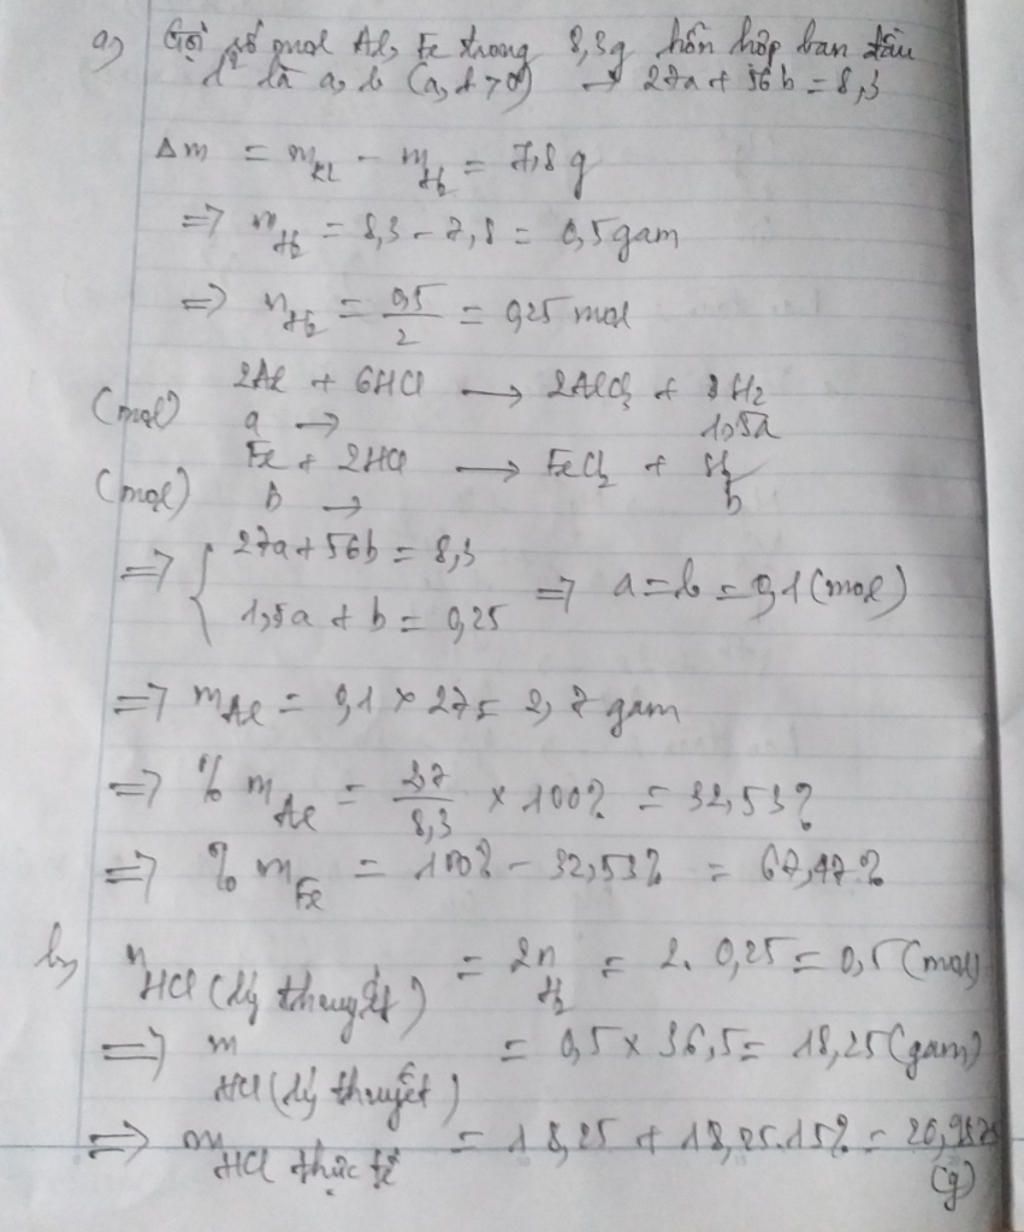 a, Gọi số mol Al, Fe trong 8,3g hỗn hợp ban đầu
lº là a, b (a, b > 0) → 27a + 56b = 8,3
Δm = m_KL - m_H₂ = 7,8 g
=> m_H₂ = 8,3 - 7,8 = 0,5 gam
=> n_H₂ = 0,5/2 = 0,25 mol
2Al + 6HCl → 2AlCl₃ + 3H₂
(mol) a → 1,5a
Fe + 2HCl → FeCl₂ + H₂
(mol) b → b
=> { 27a + 56b = 8,3
1,5a + b = 0,25 => a = b = 0,1 (mol)
=> m_Al = 0,1 × 27 = 2,7 gam
=> % m_Al = 2,7/8,3 × 100% = 32,53%
=> % m_Fe = 100% - 32,53% = 67,47%
b, n_HCl (lý thuyết) = 2n_H₂ = 2. 0,25 = 0,5 (mol)
=> m_HCl (lý thuyết) = 0,5 × 36,5 = 18,25 (gam)
=> m_HCl thực tế = 18,25 + 18,25.15% = 20,9875 (g)